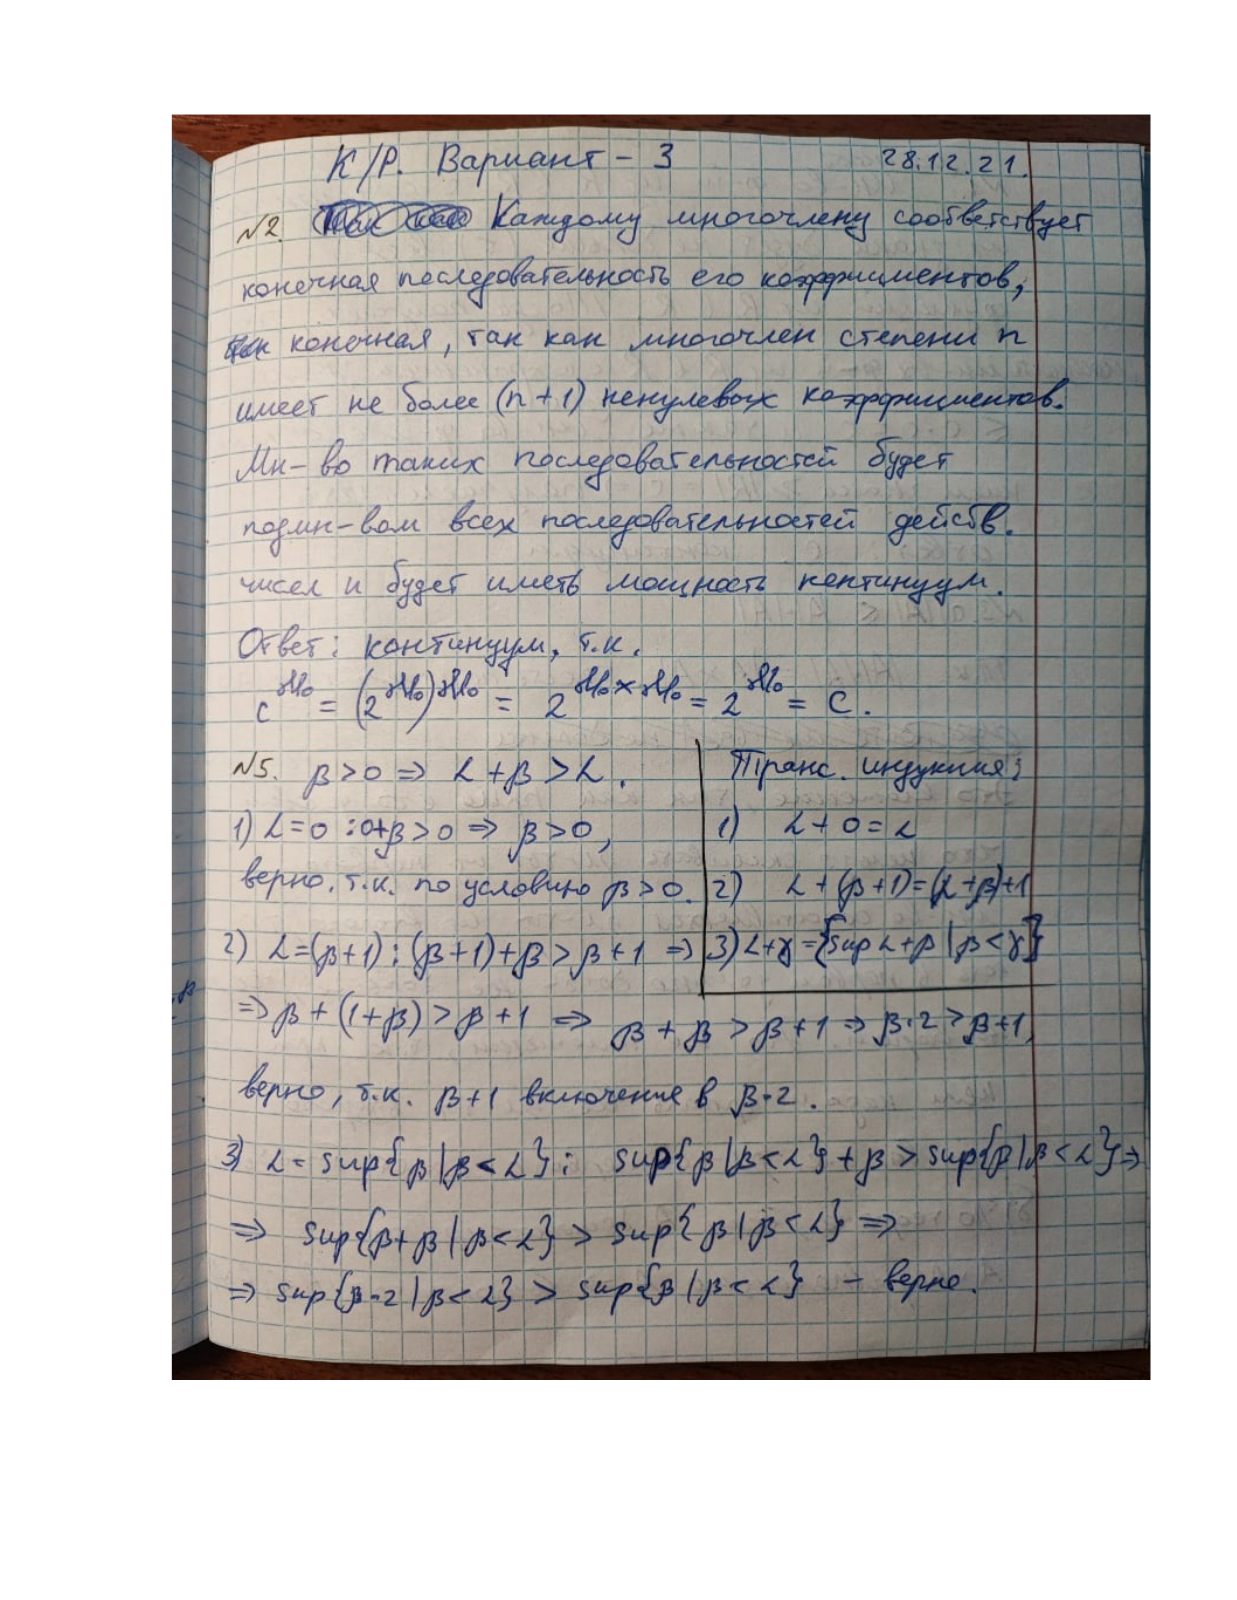 К/Р. Вариант - 3 28.12.21.
№2. Каждому многочлену соответствует
конечная последовательность его коэффициентов,
конечная, так как многочлен степени n
имеет не более (n + 1) ненулевых коэффициентов.
Мн-во таких последовательностей будет
подмн-вом всех последовательностей действ.
чисел и будет иметь мощность континуум.
Ответ: континуум, т.к.
c^ℵ₀ = (2^ℵ₀)^ℵ₀ = 2^ℵ₀×ℵ₀ = 2^ℵ₀ = C.
№5. β>0 => α+β>α.
1) α=0 : 0+β>0 => β>0,
верно, т.к. по условию β>0.
Транс. индукция:
1) α+0=α
2) α+(β+1)=(α+β)+1
3) α+γ={sup α+β | β<γ}
2) α=(β+1): (β+1)+β>β+1 =>
=> β+(1+β)>β+1 => β+β>β+1 => β·2>β+1,
верно, т.к. β+1 включение в β·2.
3) α=sup{β|β<α}: sup{β|β<α}+β>sup{β|β<α} =>
=> sup{β+β|β<α} > sup{β|β<α} =>
=> sup{β·2|β<α} > sup{β|β<α} - верно.